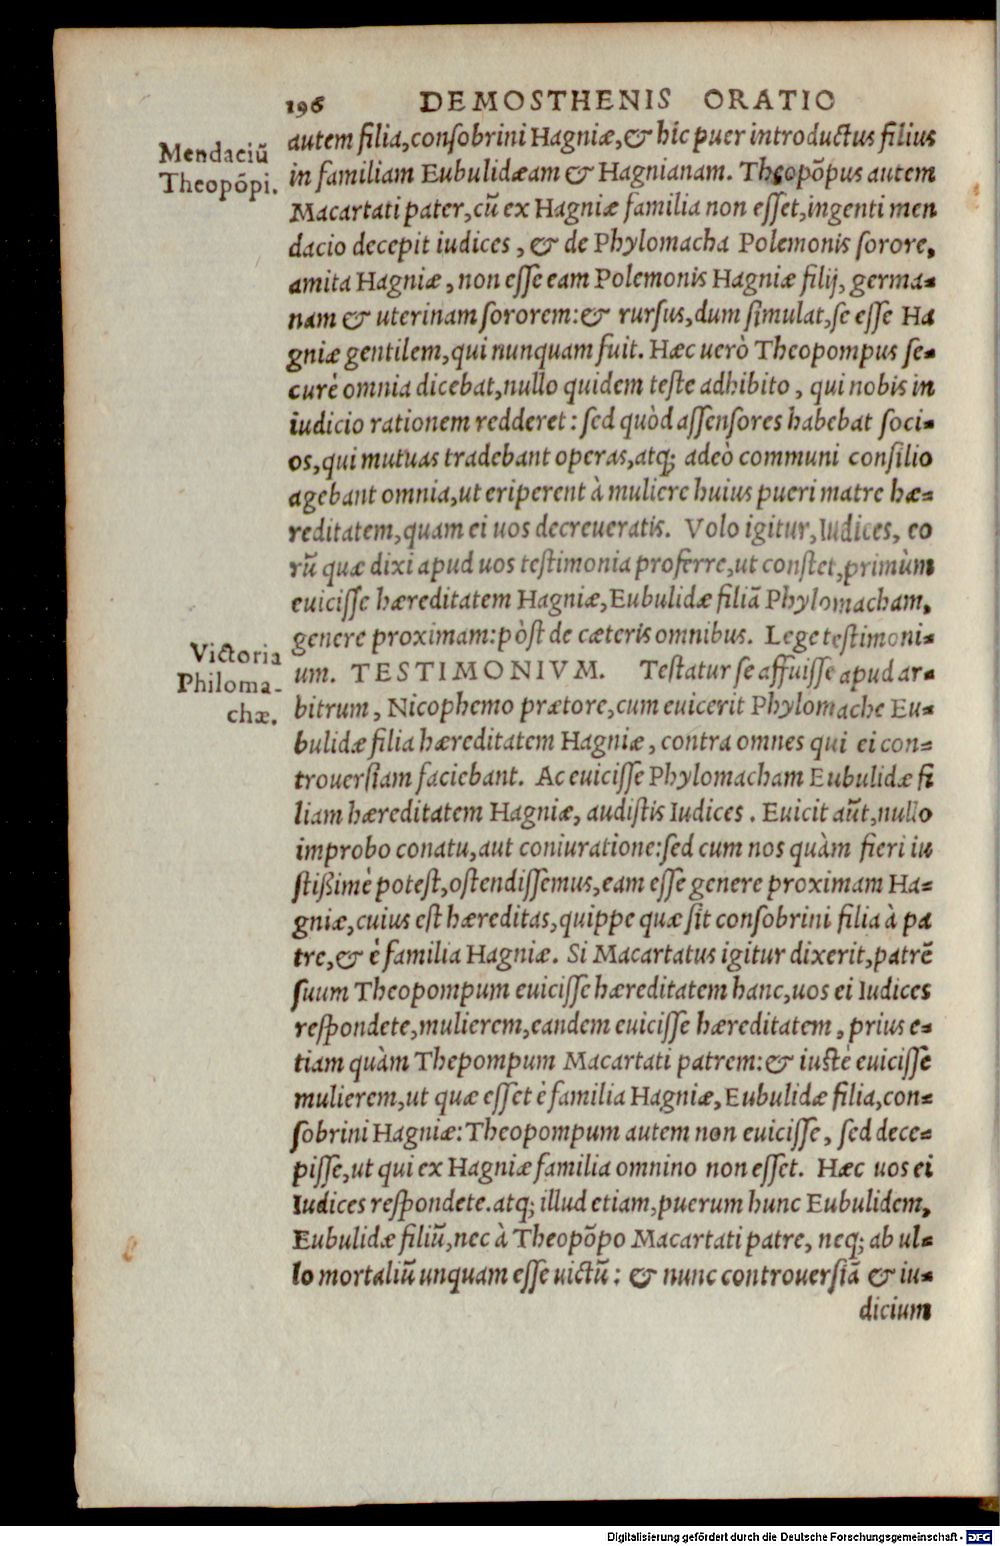 196 DEMOSTHENIS ORATIO
Mendaciũ
Theopõpi.
autem filia,consobrini Hagniæ,& hic puer introductus filius
in familiam Eubulidæam & Hagnianam. Theopõpus autem
Macartati pater,cũ ex Hagniæ familia non esset,ingenti men
dacio decepit iudices, & de Phylomacha Polemonis sorore,
amita Hagniæ, non esse eam Polemonis Hagniæ filij, germa-
nam & uterinam sororem:& rursus,dum simulat,se esse Ha
gniæ gentilem,qui nunquam fuit. Hæc uerò Theopompus se-
curè omnia dicebat,nullo quidem teste adhibito, qui nobis in
iudicio rationem redderet: sed quòd assensores habebat soci-
os,qui mutuas tradebant operas,atq; adeò communi consilio
agebant omnia,ut eriperent à muliere huius pueri matre hæ-
reditatem,quam ei uos decreueratis. Volo igitur,Iudices, eo
rũ quæ dixi apud uos testimonia proferre,ut constet,primùm
euicisse hæreditatem Hagniæ,Eubulidæ filiã Phylomacham,
genere proximam:pòst de cæteris omnibus. Lege testimoni-
Victoria
Philoma-
chæ.
um. TESTIMONIVM. Testatur se affuisse apud ar-
bitrum, Nicophemo prætore,cum euicerit Phylomache Eu-
bulidæ filia hæreditatem Hagniæ, contra omnes qui ei con-
trouersiam faciebant. Ac euicisse Phylomacham Eubulidæ fi
liam hæreditatem Hagniæ, audistis Iudices. Euicit aũt,nullo
improbo conatu,aut coniuratione:sed cum nos quàm fieri iu
stißimè potest,ostendissemus,eam esse genere proximam Ha-
gniæ,cuius est hæreditas,quippe quæ sit consobrini filia à pa
tre,& è familia Hagniæ. Si Macartatus igitur dixerit,patrẽ
suum Theopompum euicisse hæreditatem hanc,uos ei Iudices
respondete,mulierem,eandem euicisse hæreditatem, prius e-
tiam quàm Thepompum Macartati patrem:& iustè euicisse
mulierem,ut quæ esset è familia Hagniæ,Eubulidæ filia,con-
sobrini Hagniæ:Theopompum autem non euicisse, sed dece-
pisse,ut qui ex Hagniæ familia omnino non esset. Hæc uos ei
Iudices respondete.atq; illud etiam,puerum hunc Eubulidem,
Eubulidæ filiũ,nec à Theopõpo Macartati patre, neq; ab ul-
lo mortaliũ unquam esse uictũ: & nunc controuersiã & iu-
dicium
Digitalisierung gefördert durch die Deutsche Forschungsgemeinschaft - DFG